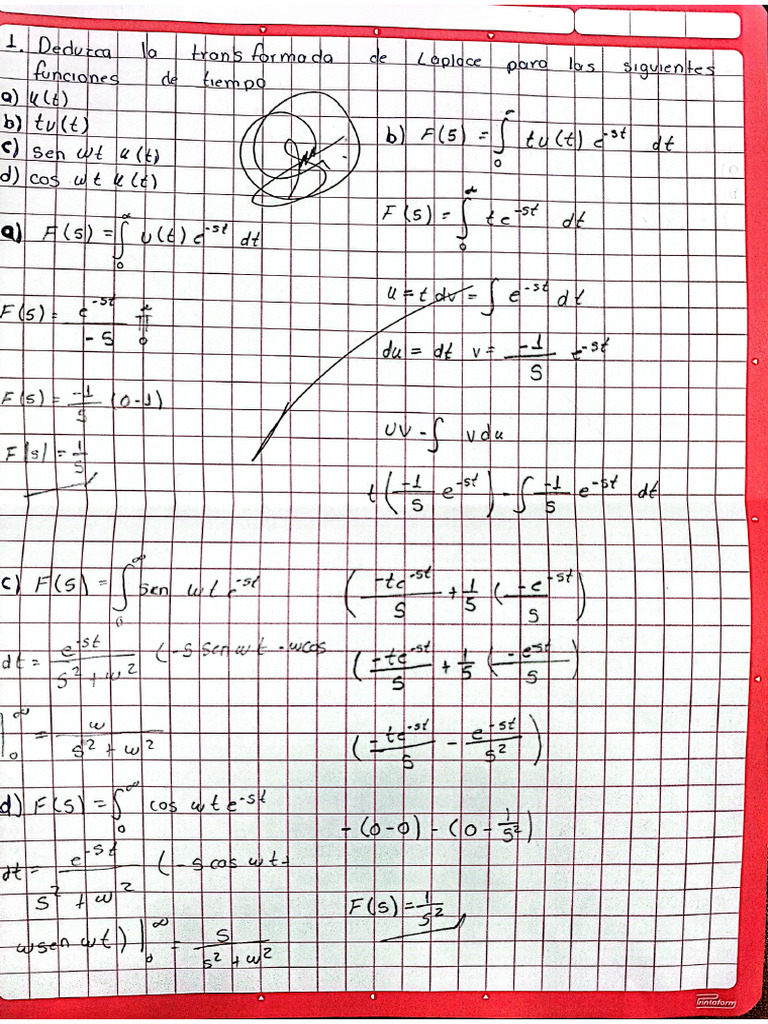 1. Deduzca la transformada de Laplace para las siguientes
funciones de tiempo
a) u(t)
b) tu(t)
c) sen wt u(t)
d) cos wt u(t)
a) F(s) = ∫₀^∞ u(t) e^-st dt
F(s) = e^-st / -s |₀^∞
F(s) = -1/s (0-1)
F(s) = 1/s
b) F(s) = ∫₀^∞ tu(t) e^-st dt
F(s) = ∫₀^∞ te^-st dt
u = t dv = ∫ e^-st dt
du = dt v = -1/s e^-st
uv - ∫ vdu
t(-1/s e^-st) - ∫ -1/s e^-st dt
(-te^-st/s + 1/s (-e^-st/s)
(-te^-st/s + 1/s (-e^st/s)
(-te^-st/s - e^-st/s²)
-(0-0) - (0 - 1/s²)
F(s) = 1/s²
c) F(s) = ∫₀^∞ sen wt e^-st
dt = e^-st / s² + w² (-s sen wt - wcos
|₀^∞ = w / s² + w²
d) F(s) = ∫₀^∞ cos wt e^-st
dt = e^-st / s² + w² (-s cos wt +
wsen wt) |₀^∞ = s / s² + w²
Printaform